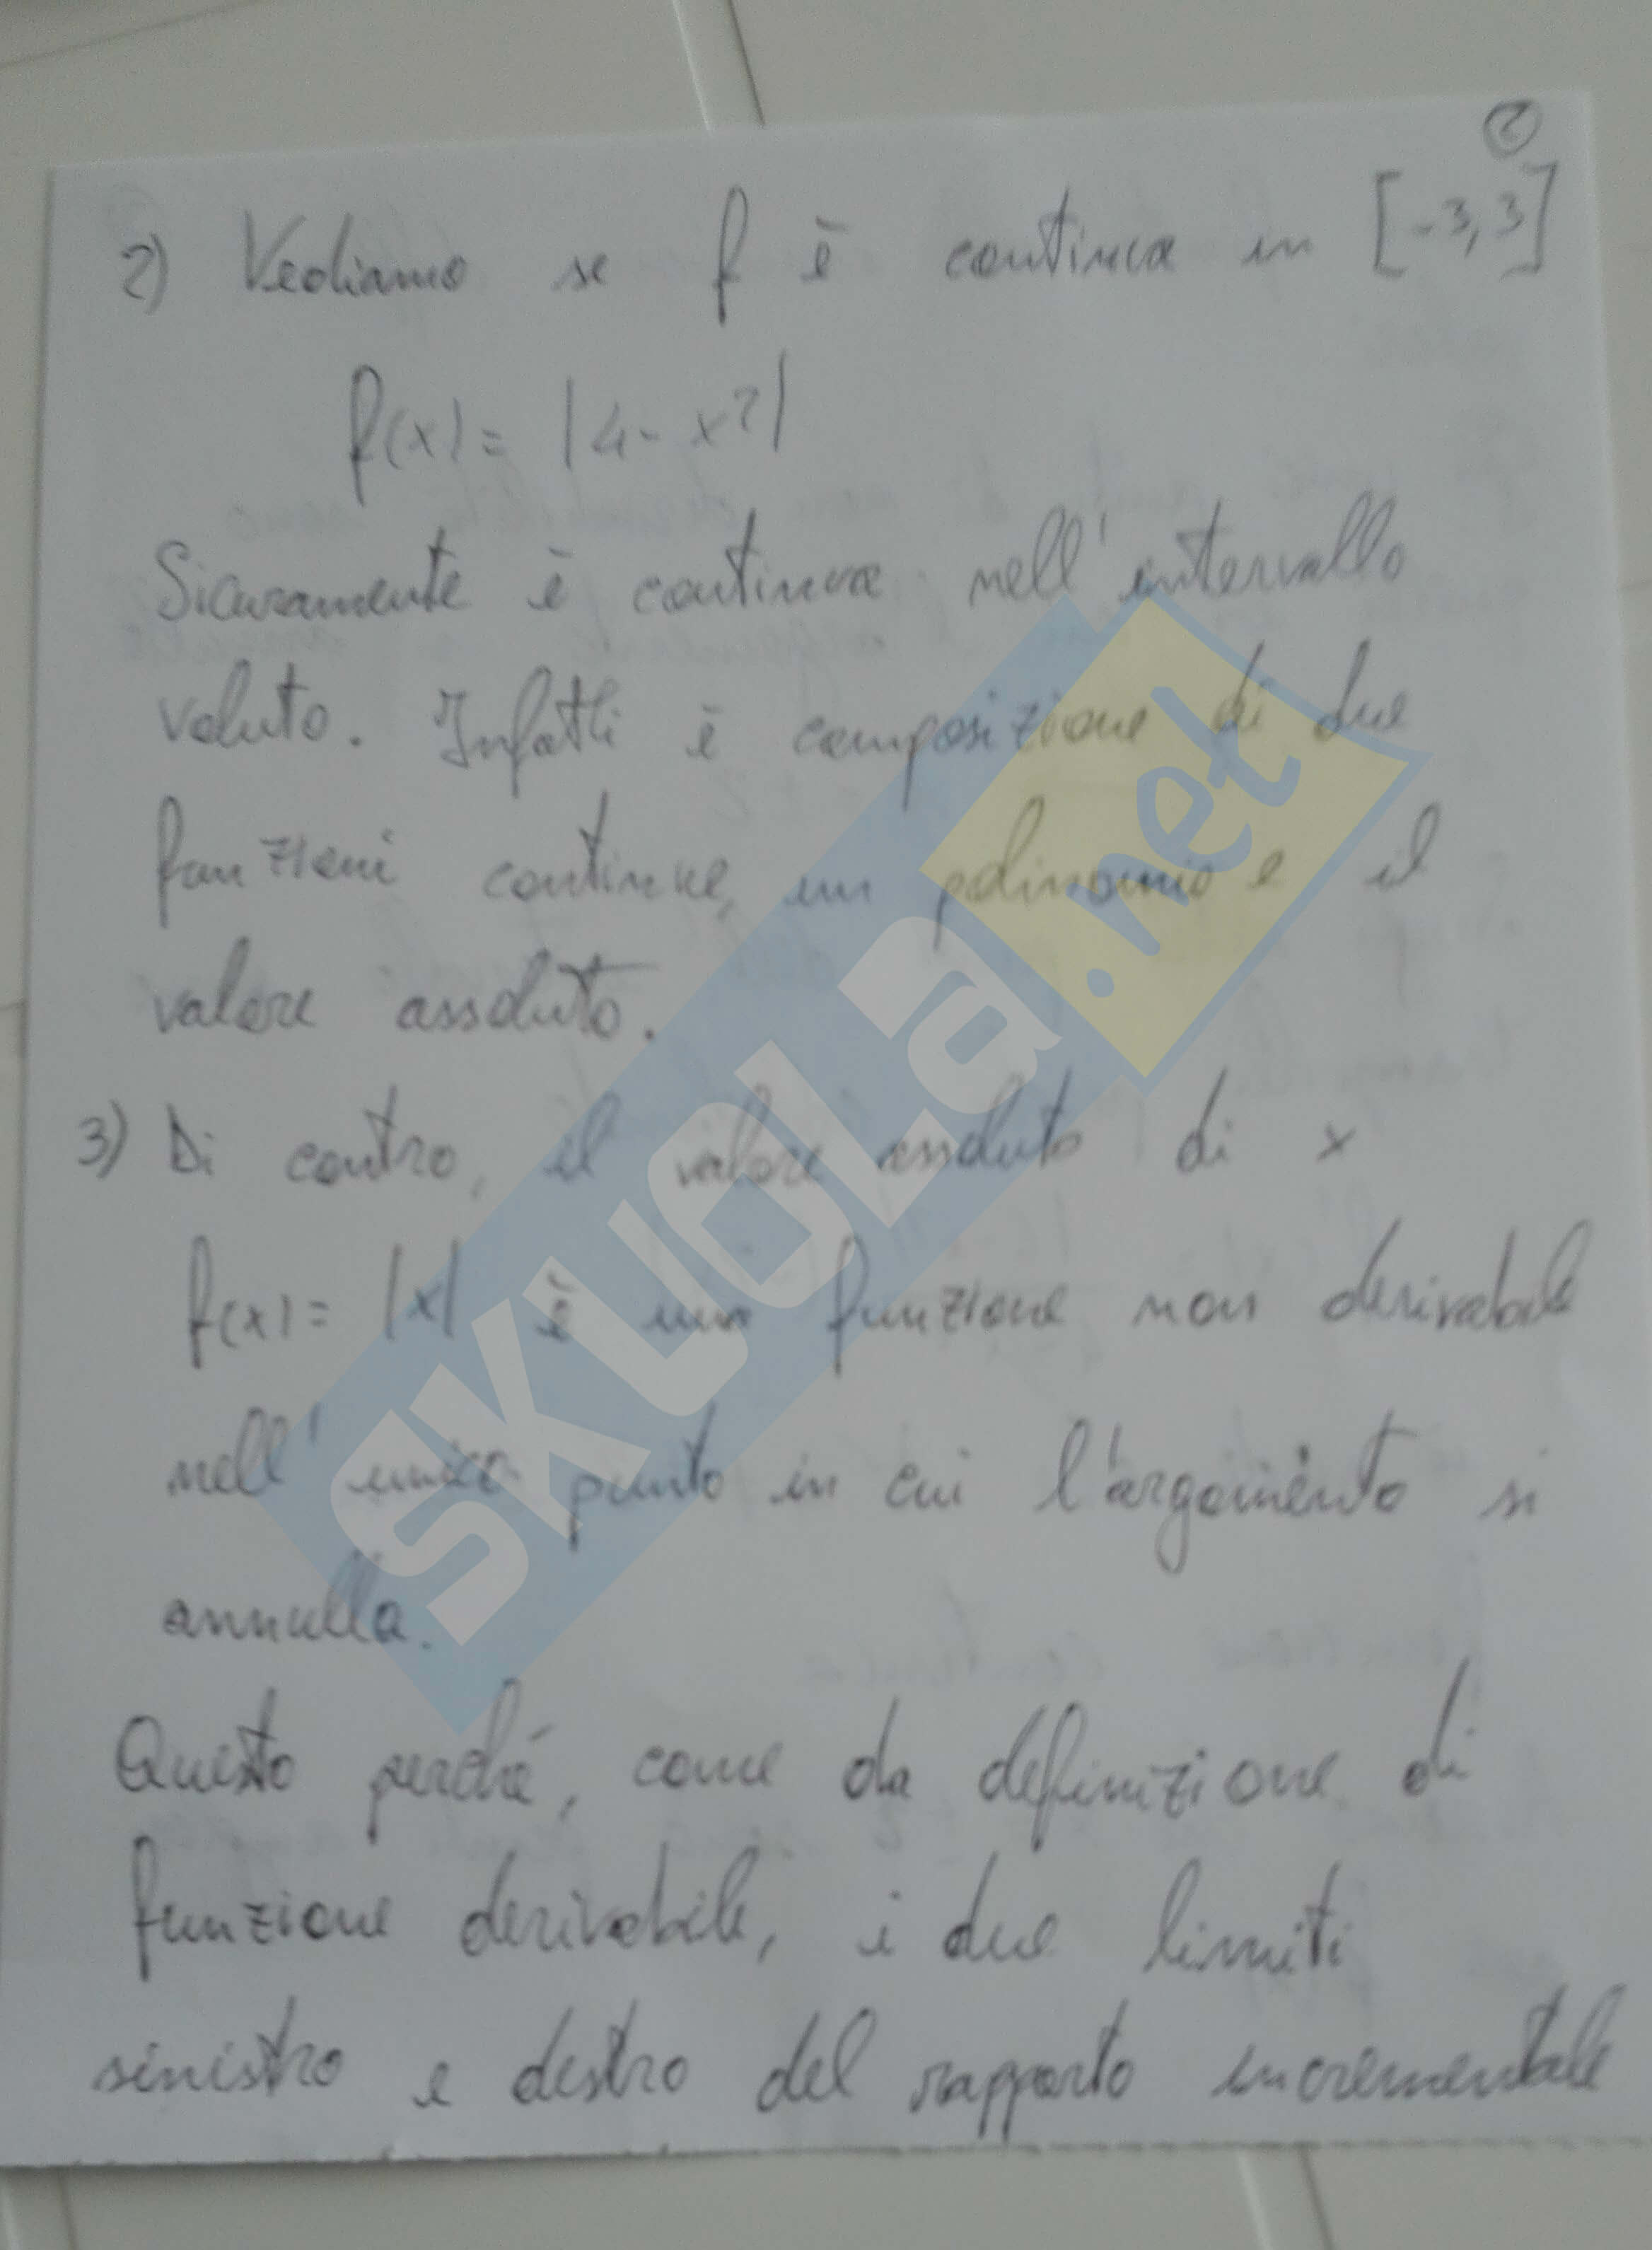 ②
2) Vediamo se f è continua in [-3,3]
f(x) = |4- x²|
Sicuramente è continua nell'intervallo
voluto. Infatti è composizione di due
funzioni continue, un polinomio e il
valore assoluto.
3) Di contro, il valore assoluto di x
f(x) = |x| è una funzione non derivabile
nell'unico punto in cui l'argomento si
annulla.
Questo perché, come da definizione di
funzione derivabile, i due limiti
sinistro e destro del rapporto incrementale
SKUOLa.net